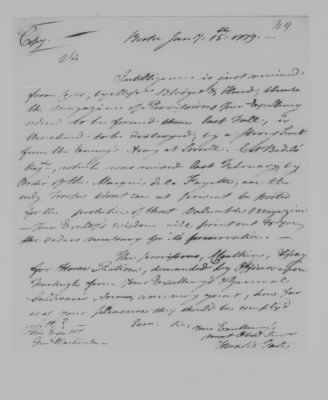 Copy.
Boston Jany. 15th 1779.
Sir
Intelligence is just received
from Coos, by Messrs Blidges & Handy, that
the Magazine of Provisions Your Excellency
ordered to be formed there last Fall, is
threatend to be destroyed, by a
from the Enemy's Army at Sorrell. Col. Bedels
Regt., which was raised last February, by
Order of the Marquis de la Fayette, are the
only Troops that can at present be posted
for the protection of that Valuable Magazine
Your Excelly's wisdom will point out to you
the orders necessary for its preservation
The provisions, Cloathing, & pay
for Horse demanded by Officers upon
Furlough from Your Excellency's & General
Sullivan's Armies, are very great, how far
is it your pleasure they should be complyd
with?
I am Sir, Your Excellency's
most Obedt. Servt.
Horatio Gates
His Excellcy
Genl Washington